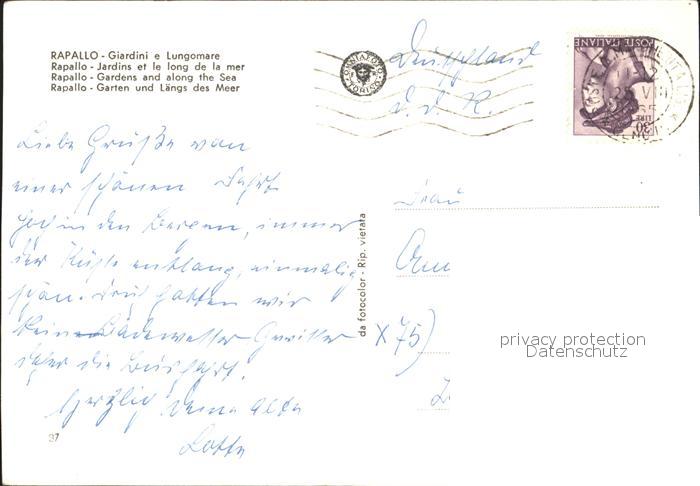 RAPALLO - Giardini e Lungomare
Rapallo - Jardins et le long de la mer
Rapallo - Gardens and along the Sea
Rapallo - Garten und Längs des Meer
OMNIAFOTO
TORINO
POSTE ITALIANE
LIRE 30
Deutschland
Liebe Grüße von
einer schönen Fahrt
hoch in den Bergen, immer
der Küste entlang, einmalig
schön. hatten wir
kein Badewetter Gewitter
über die
Herzlich Deine alte
Lotte
da fotocolor - Rip. vietata
Frau
x 75)
privacy protection
Datenschutz
37